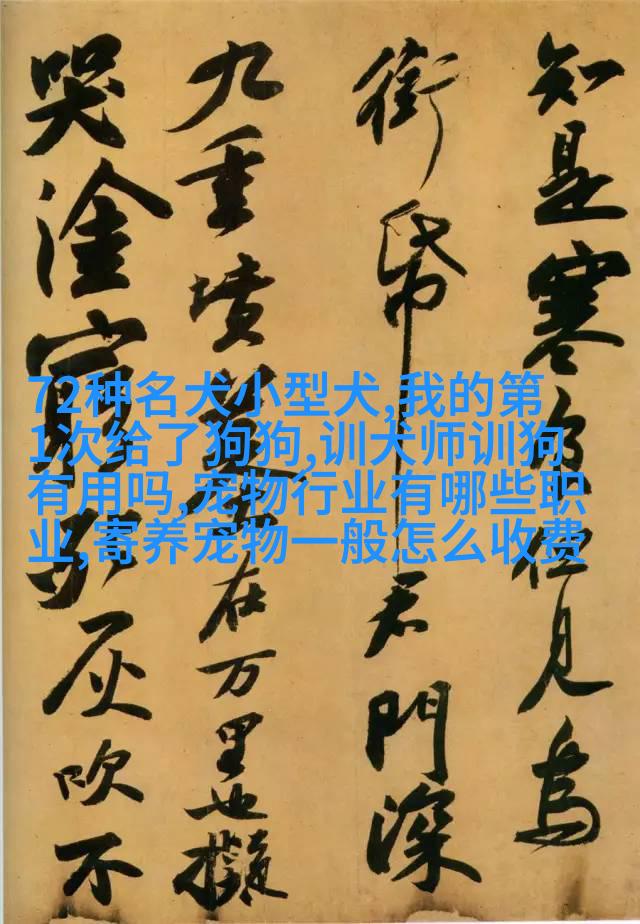 知是寒食但見烏
銜帋君門深
九重墳墓在万里也擬
哭塗窮死灰吹不
72种名犬小型犬,我的第
1次给了狗狗,训犬师训狗
有用吗,宠物行业有哪些职
业,寄养宠物一般怎么收费